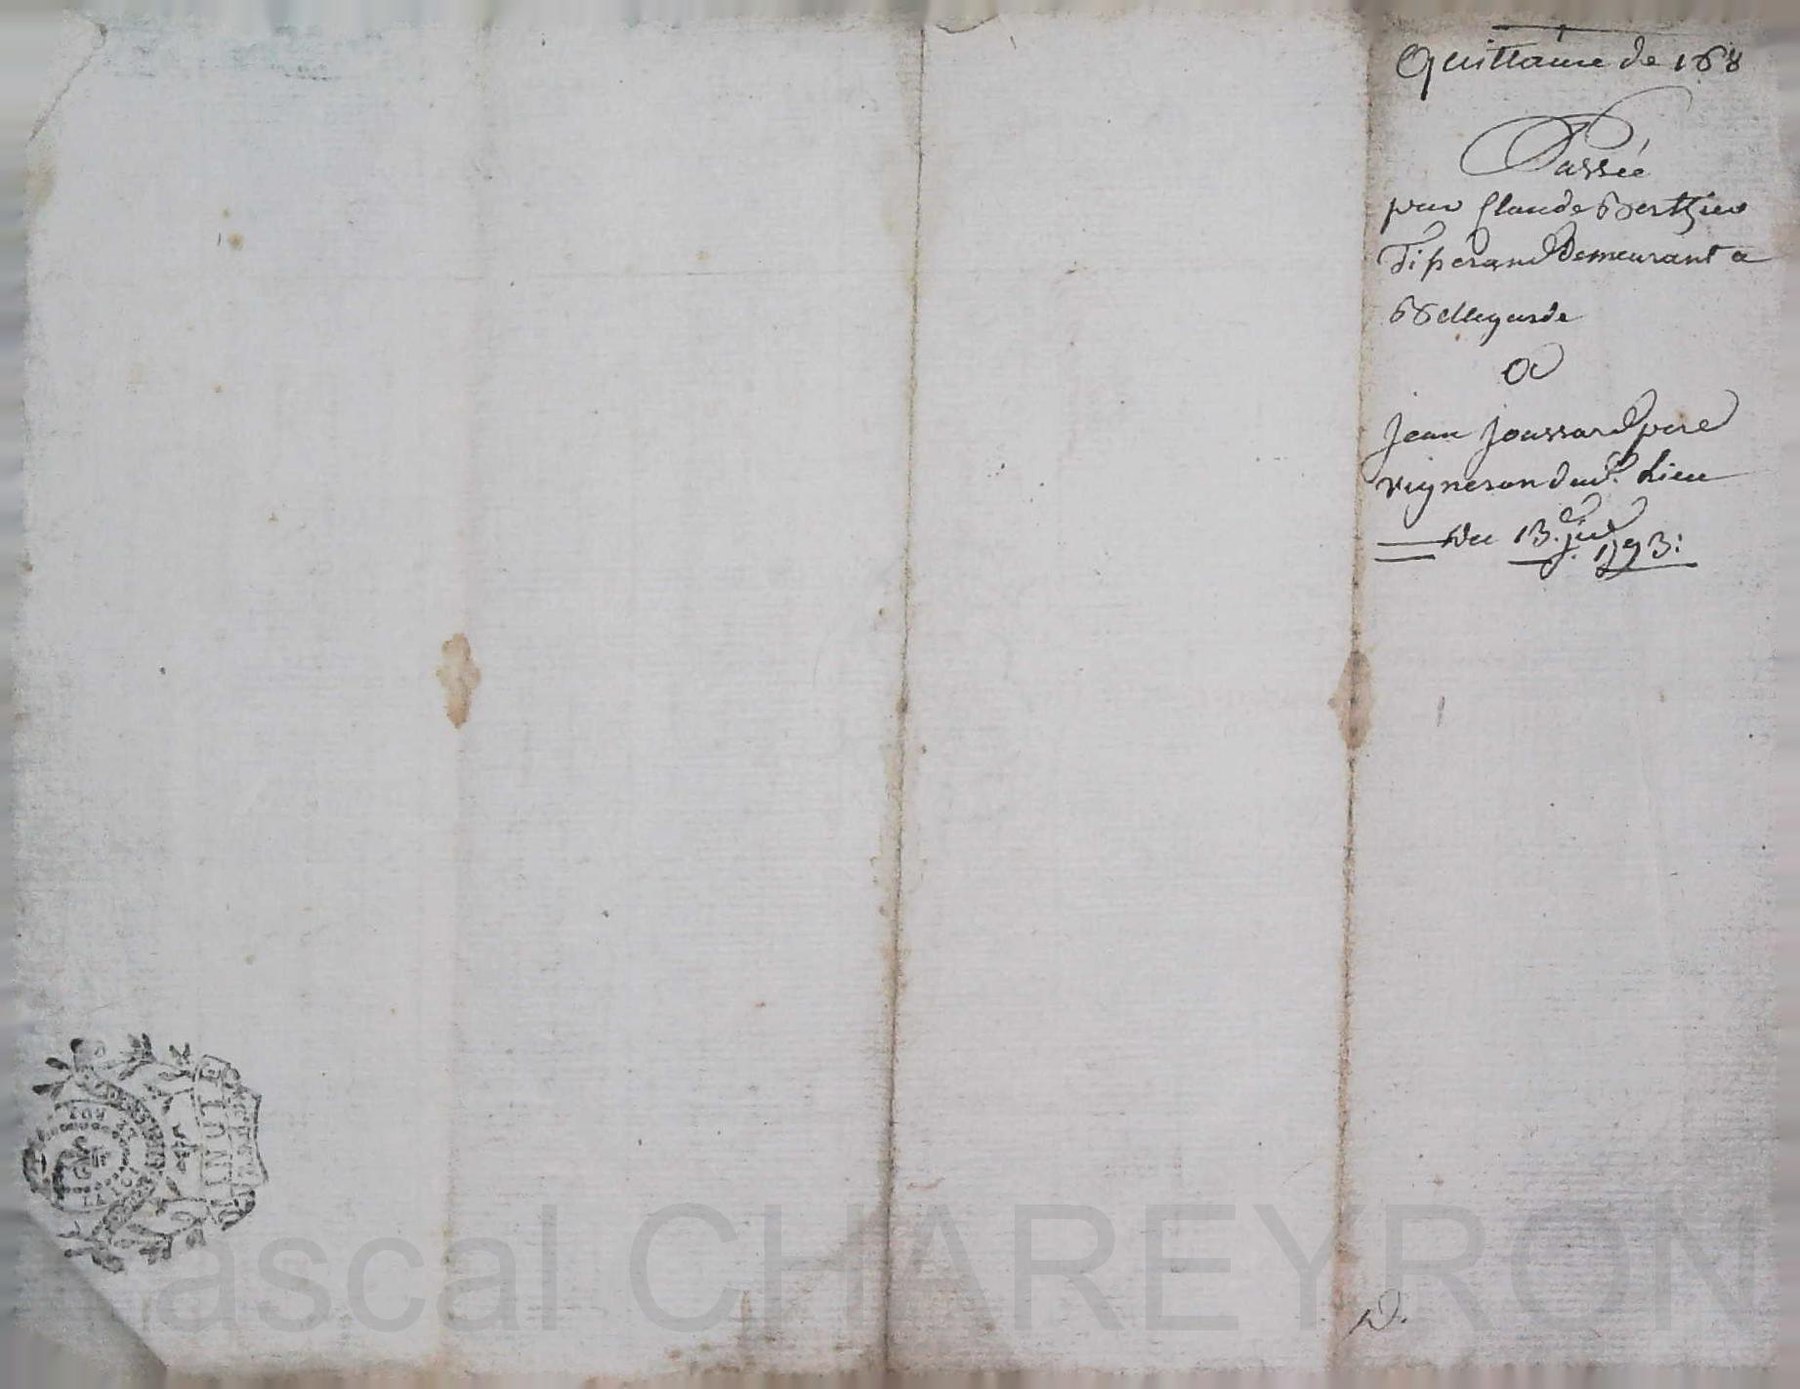 Quittance de 168
Passée
par Claude Berthier
Tiserand Demeurant a
Bellegarde
a
jean joassard pere
vigneron dud. Lieu
Du 13. jet. 1793.
D.
ascal CHAREYRON